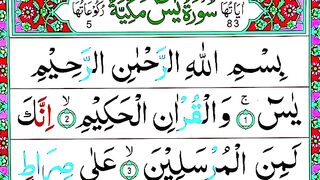 اٰیَاتُهَا 83 سُوْرَةُ یٰسٓ مَكِّیَّةٌ رُكُوْعَاتُهَا 5
بِسْمِ اللّٰهِ الرَّحْمٰنِ الرَّحِیْمِ
یٰسٓ ۚ‏ ۝1 وَالْقُرْاٰنِ الْحَكِیْمِ ۙ‏ ۝2 اِنَّكَ
لَمِنَ الْمُرْسَلِیْنَ ۙ‏ ۝3 عَلٰی صِرَاطٍ